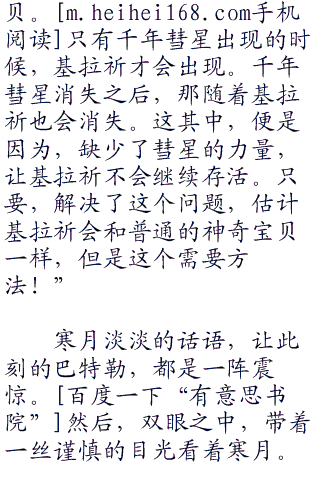 贝。[m.heihei168.com手机
阅读]只有千年彗星出现的时
候，基拉祈才会出现。千年
彗星消失之后，那随着基拉
祈也会消失。这其中，便是
因为，缺少了彗星的力量，
让基拉祈不会继续存活。只
要，解决了这个问题，估计
基拉祈会和普通的神奇宝贝
一样，但是这个需要方
法！”
寒月淡淡的话语，让此
刻的巴特勒，都是一阵震
惊。[百度一下“有意思书
院”]然后，双眼之中，带着
一丝谨慎的目光看着寒月。